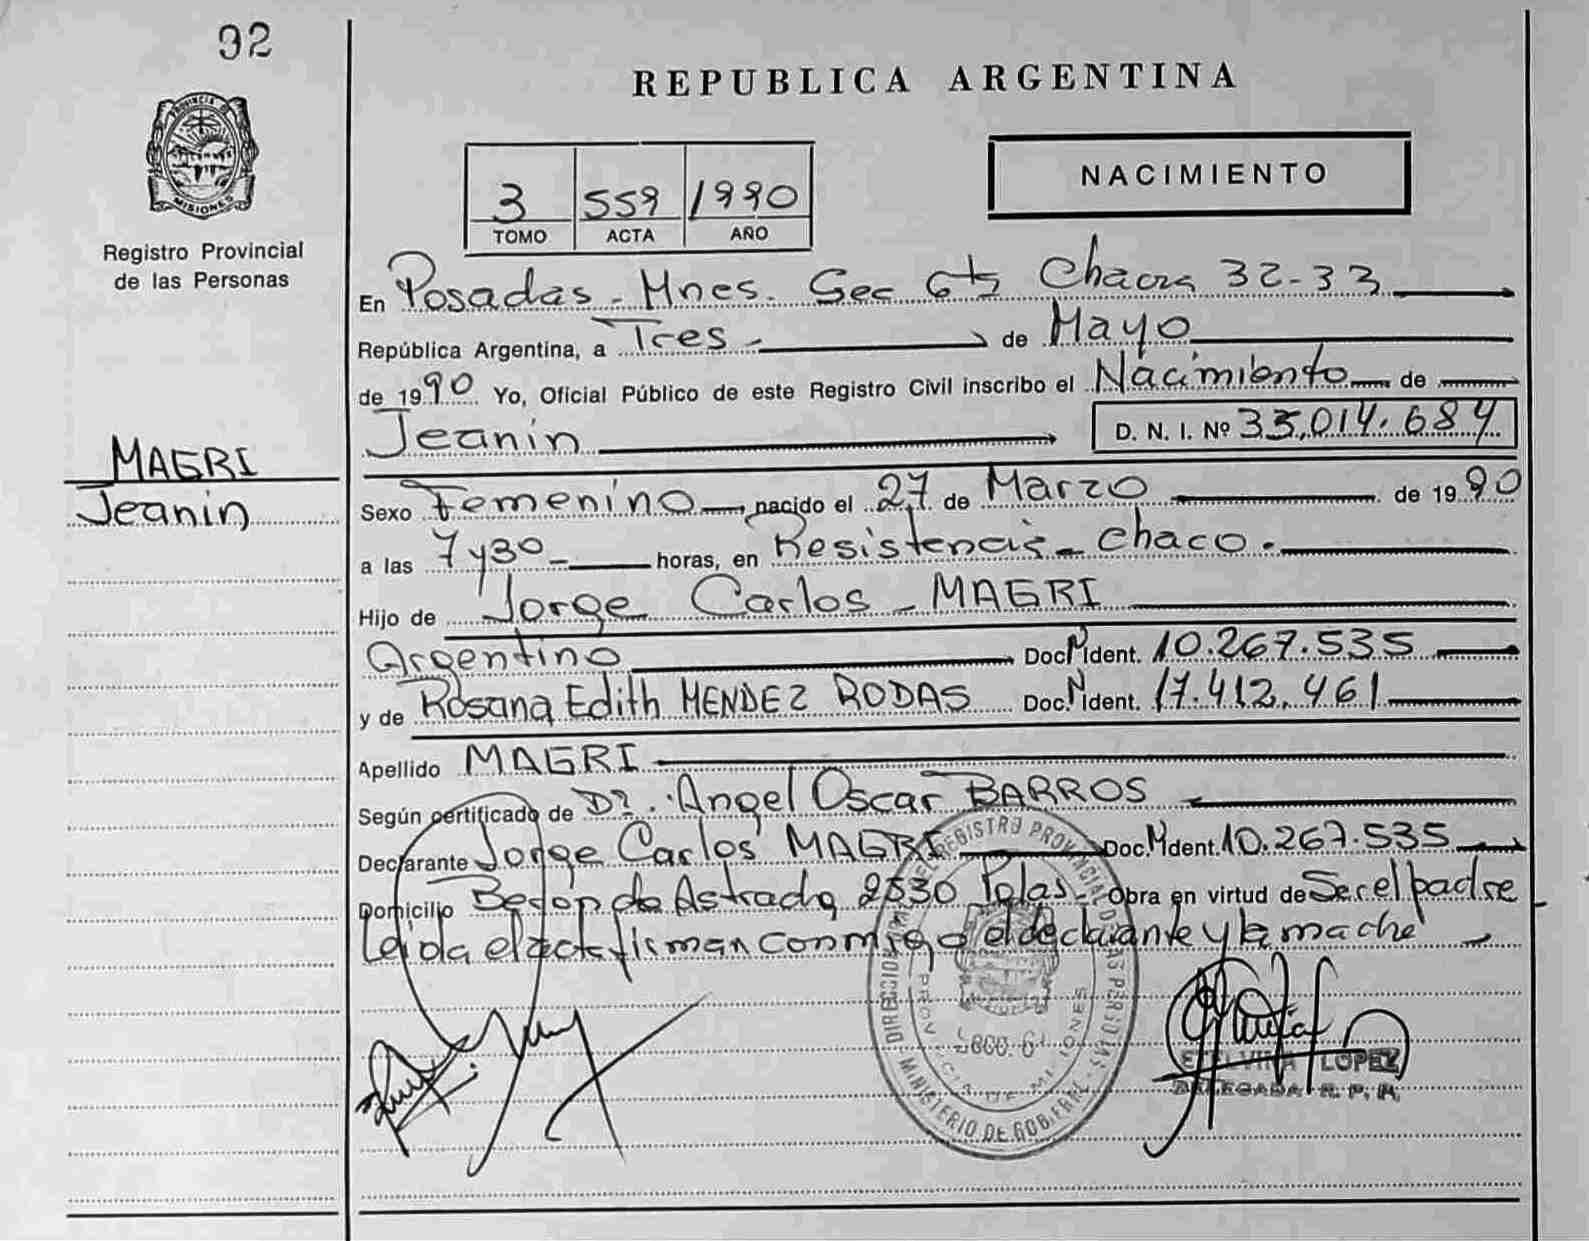 92
REPUBLICA ARGENTINA
PROVINCIA DE
MISIONES
Registro Provincial
de las Personas
3 559 1990
TOMO ACTA AÑO
NACIMIENTO
En Posadas - Mnes. Sec 6ta Chacra 32-33
República Argentina, a Tres - de Mayo
de 1990 Yo, Oficial Público de este Registro Civil inscribo el Nacimiento de
Jeanin D. N. I. Nº 35.014.684
MAGRI
Jeanin
Sexo Femenino nacido el 27 de Marzo de 1990
a las 7 y 30 - horas, en Resistencia - Chaco.
Hijo de Jorge Carlos - MAGRI
Argentino Doc. N Ident. 10.267.535
y de Rosana Edith MENDEZ RODAS Doc. N Ident. 17.412.461
Apellido MAGRI
Según certificado de Dr. Angel Oscar BARROS
Declarante Jorge Carlos MAGRI Doc. N Ident. 10.267.535
Domicilio de Astrada 2530 Pdas - Obra en virtud de Ser el padre
Leida el acta firman conmigo el declarante y la madre
DIRECCION REGISTRO PROVINCIAL DE LAS PERSONAS
MINISTERIO DE GOBIERNO
PROVINCIA DE MISIONES
LOPEZ
DELEGADA R. P. P.